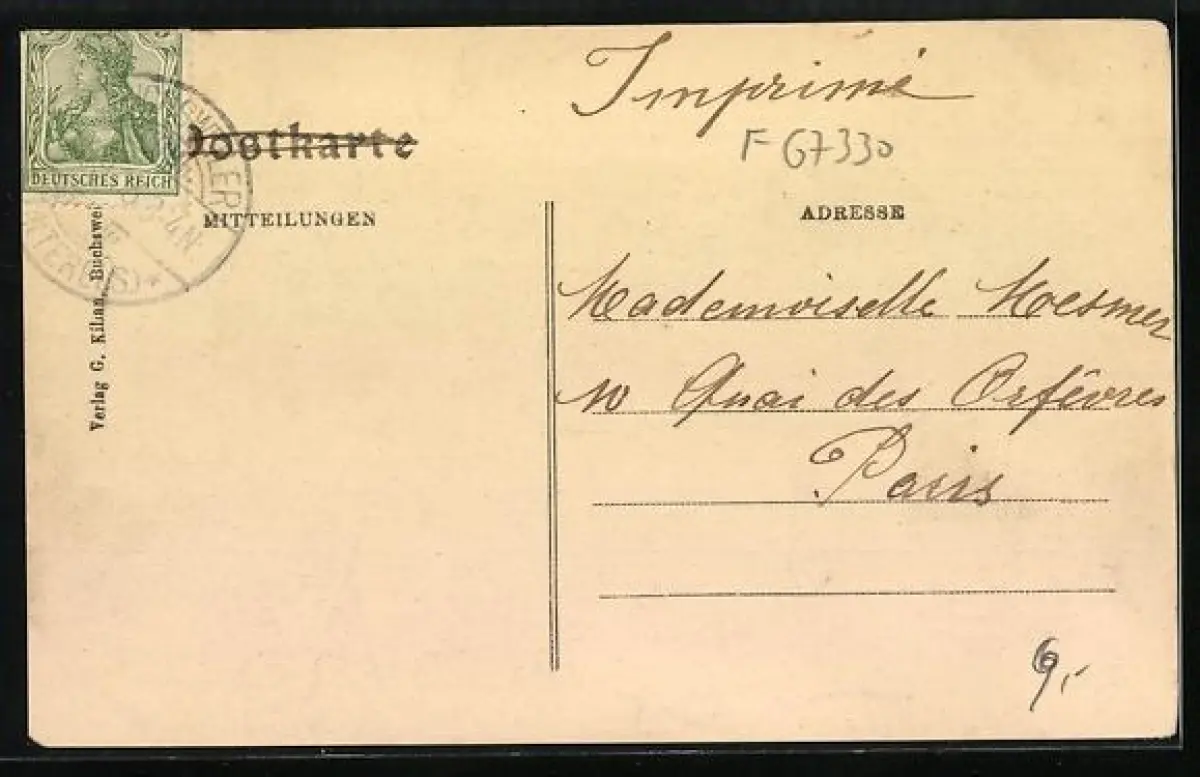 Imprimé
F 67330
Postkarte
DEUTSCHES REICH
MITTEILUNGEN
ADRESSE
Verlag G. Kilian, Buchswei
Mademoiselle
10 Quai des Orfêvres
Paris